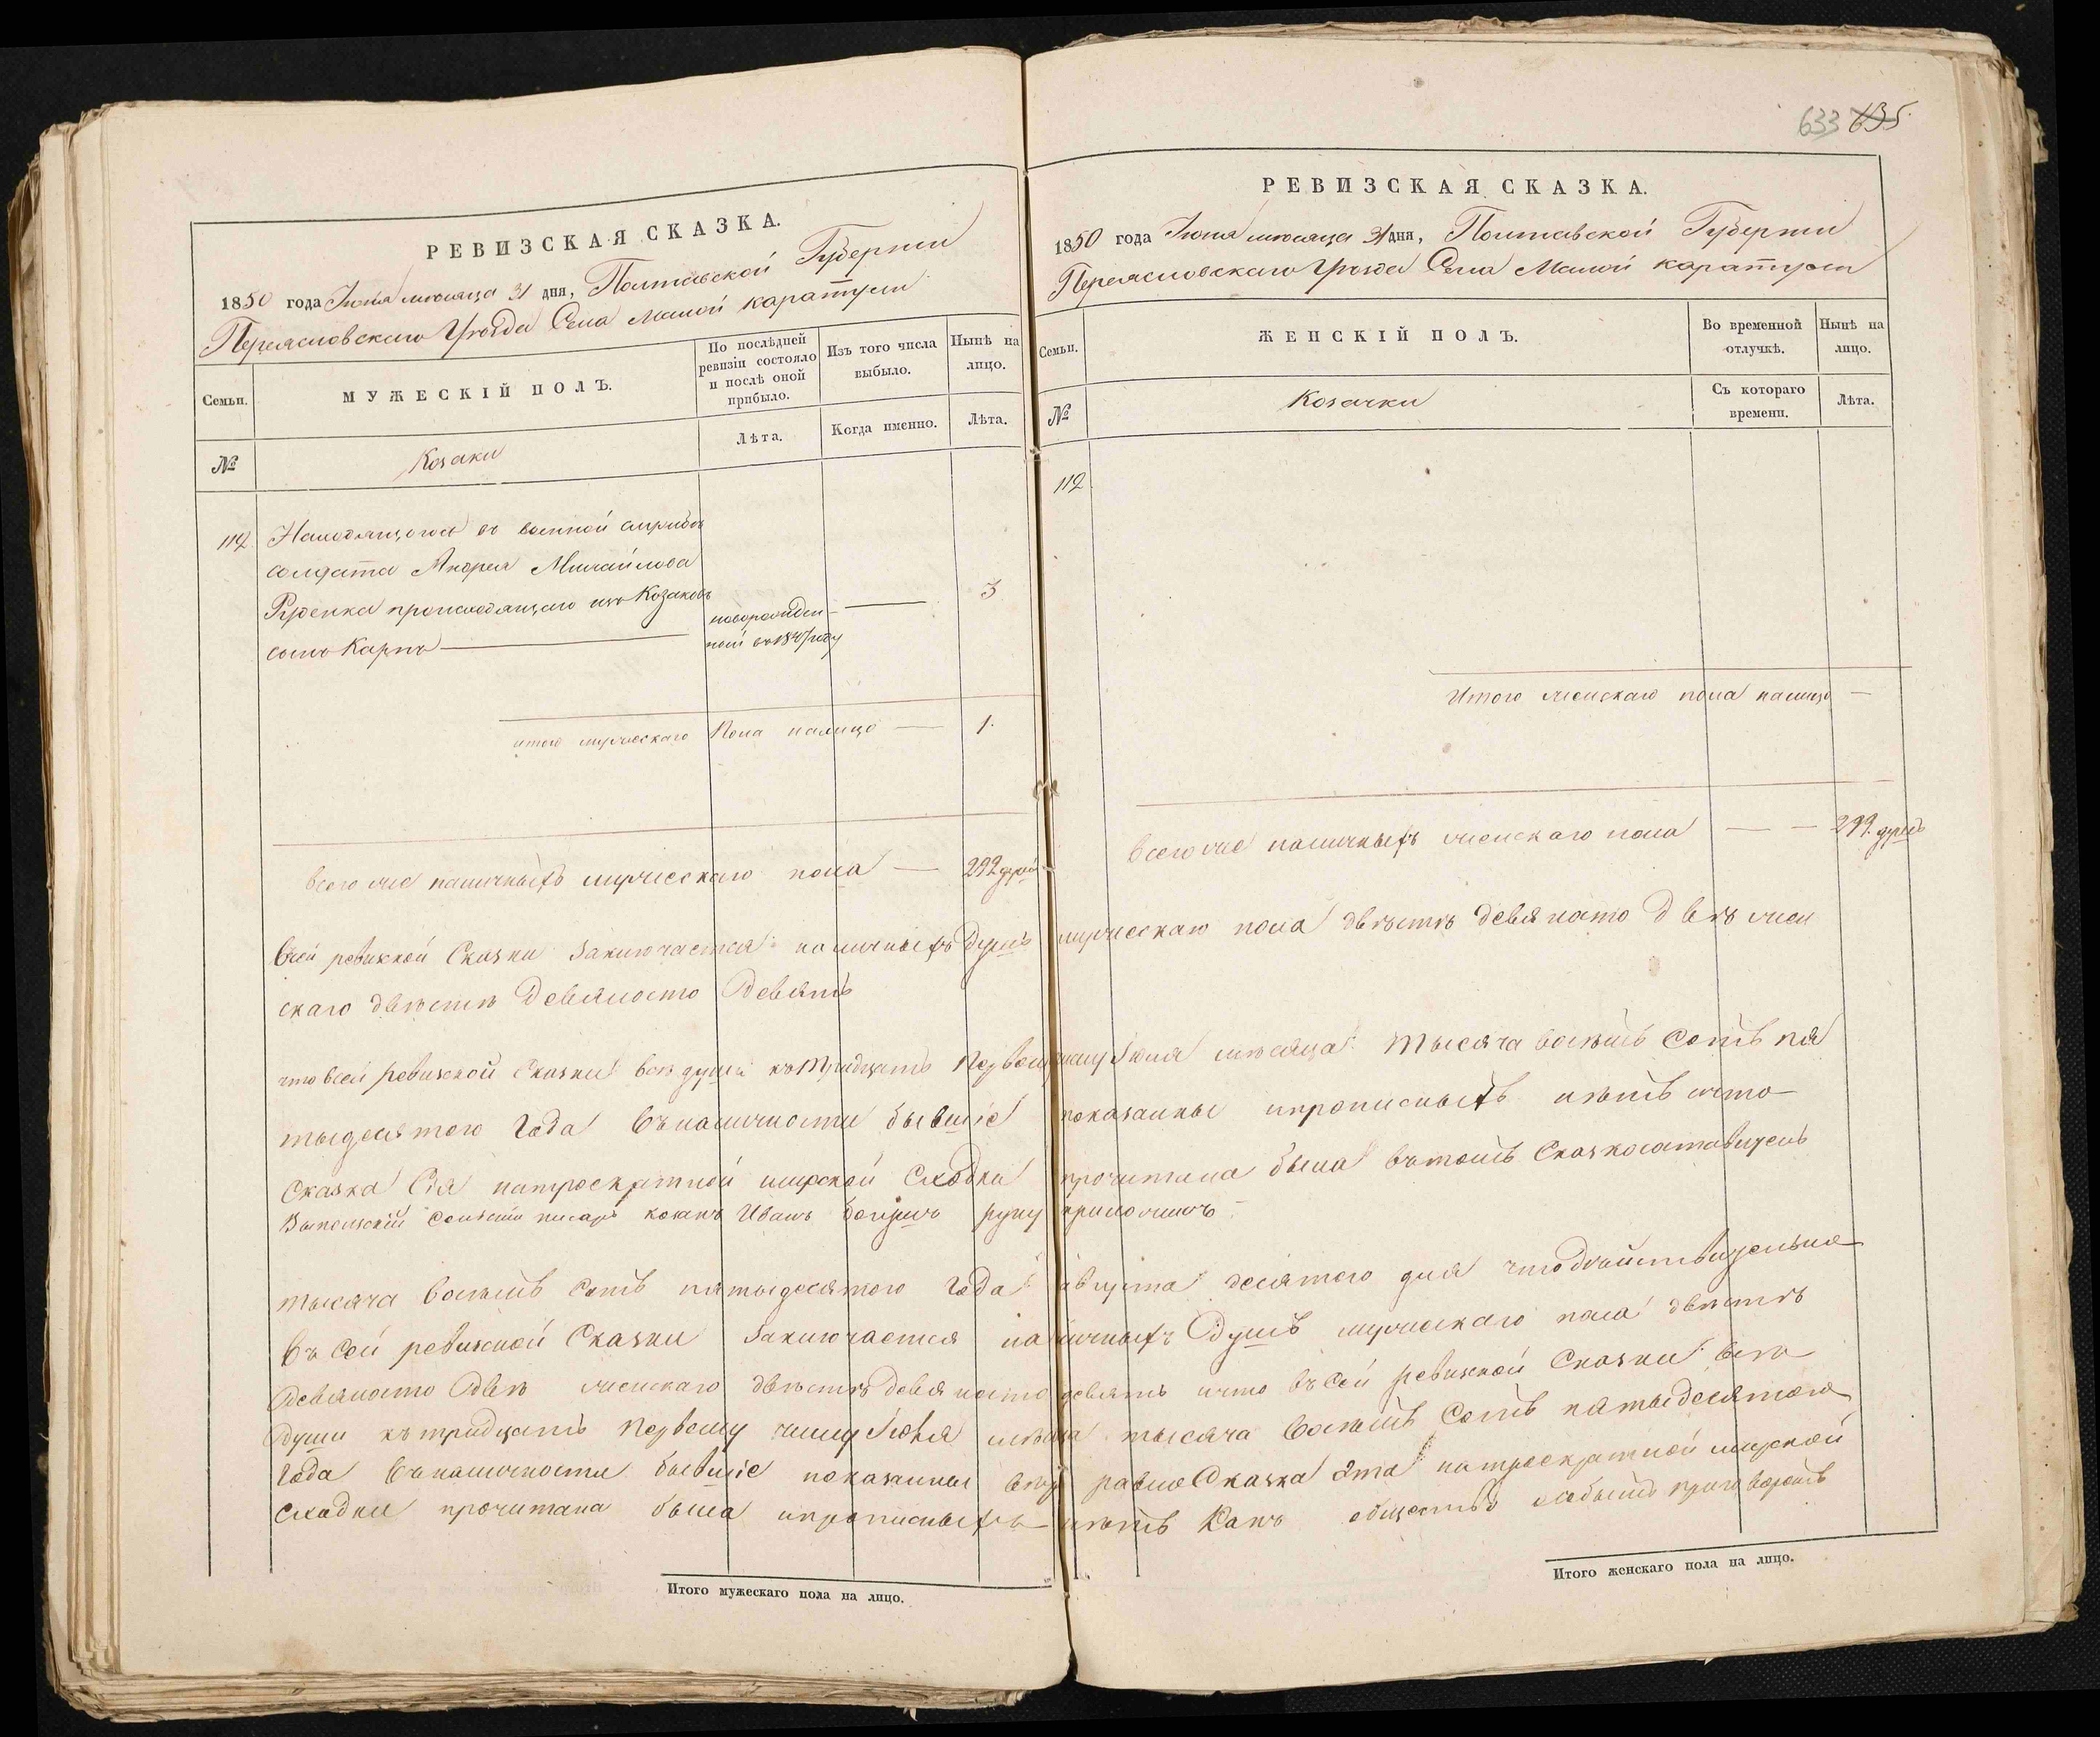 633 635
РЕВИЗСКАЯ СКАЗКА.
1850 года Іюля мѣсяца 31 дня, Полтавской Губерніи
Переясловскаго Уѣзда Села Малой каратули
Семьи.
МУЖЕСКІЙ ПОЛЪ.
По послѣдней
ревизіи состояло
и послѣ оной
прибыло.
Изъ того числа
выбыло.
Нынѣ на
лицо.
№
Козаки
Лѣта.
Когда именно.
Лѣта.
112. Находящегося въ военной службѣ
солдата Андрея Михайлова
Руденка происходящаго изъ Козаковъ
сынъ Карпъ
новорожден
ной въ 1847 году
3
итого мужескаго Пола налицо — 1.
Всего же наличныхъ мужескаго пола — 292 душъ
РЕВИЗСКАЯ СКАЗКА.
1850 года Іюля мѣсяца 31 дня, Полтавской Губерніи
Переясловскаго Уѣзда Села Малой каратули
Семьи.
ЖЕНСКІЙ ПОЛЪ.
Во временной
отлучкѣ.
Нынѣ на
лицо.
№
Козачки
Съ котораго
времени.
Лѣта.
112
Итого женскаго пола налицо —
Всего же наличныхъ женскаго пола — — 299. душъ
Всей ревизкой Сказки Заключается наличныхъ Душъ мужескаго пола двѣстѣ девяносто двѣ жен
скаго двѣстѣ Девяносто Девять
что всей ревизской Сказки всѣ души къ Тридцать Первому числу Іюля мѣсяца Тысяча восѣмъ Сотъ пя
тыдесятого Года Въ наличности бывшіе показанны ипрописныхъ нѣтъ ичто
Сказка Сія натроекратной мирской Сходки прочитана была Вътомъ Сказкосставитель
сельскій писарь козакъ Иванъ руку приложилъ
Тысяча Восѣмъ Сотъ пятыдесятого Года августа десятого дня что дѣйствительно
Въ Сей ревизкой Сказки Заключается наличныхъ Душъ мужескаго пола двѣстѣ
Девяносто Двѣ женскаго двѣстѣ девяносто девять ичто въ Сей ревизкой Сказки всѣ
Души къ тридцать Первому числу Іюля мѣсяца тысяча Восѣмъ Сотъ пятыдесятого
Года Въ наличности бывшіе показанны равно Сказка Эта натроекратной мирской
Сходки прочитана была ипрописныхъ нѣтъ Какъ общество особымъ приговоромъ
Итого мужескаго пола на лицо.
Итого женскаго пола на лицо.